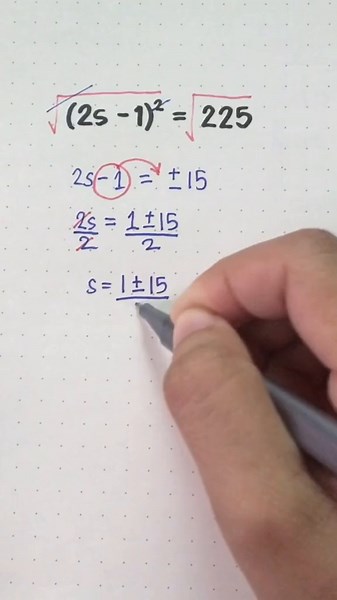 √(2s - 1)² = √225
2s - 1 = ± 15
2s/2 = 1 ± 15/2
s = 1 ± 15